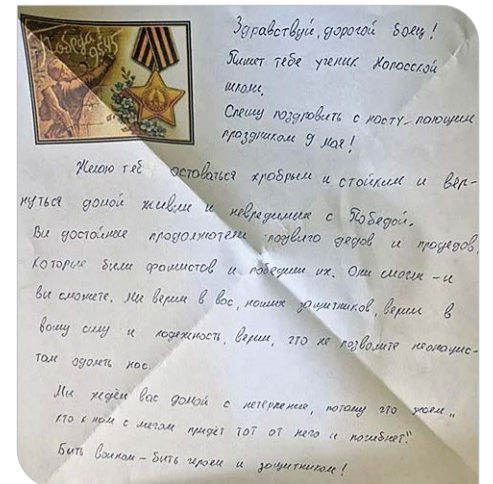 Победа
9 мая 1945
Здравствуй, дорогой боец!
Пишет тебе ученик
школы.
Спешу поздравить с насту-пающим
праздником 9 мая!
Желаю тебе оставаться храбрым и стойким и вер-
нуться домой живым и невредимым с Победой.
Вы достойные продолжатели подвига дедов и прадедов,
которые били фашистов и победили их. Они смогли – и
вы сможете. Мы верим в вас, наших защитников, верим в
вашу силу и надежность, верим, что не позволите неонацис-
там одолеть нас.
Мы ждём вас домой с нетерпение, потому что знаем „
кто к нам с мечом придёт тот от него и погибнет."
Быть воином – быть героем и защитником!